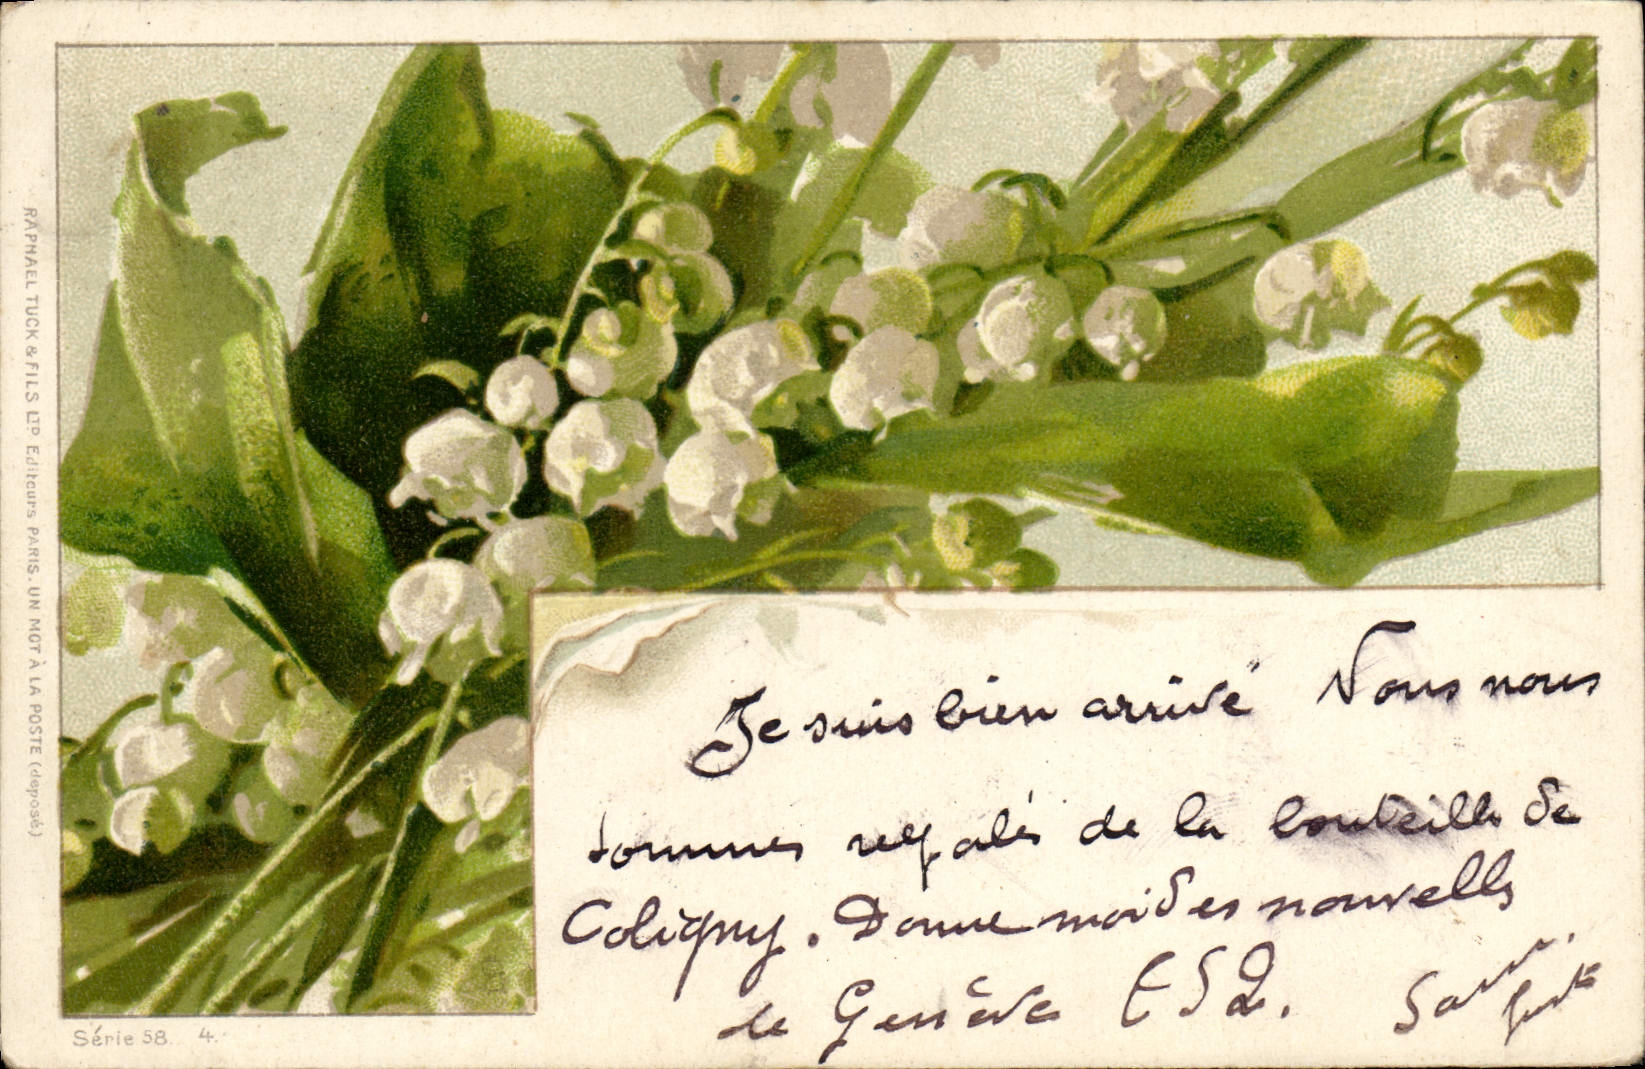 RAPHAEL TUCK & FILS LTD Editeurs PARIS. UN MOT À LA POSTE (déposé)
Je suis bien arrivé Nous nous
sommes regalés de la bouteille de
Coligny. Donne moi des nouvelles
de Genève
Série 58. 4.